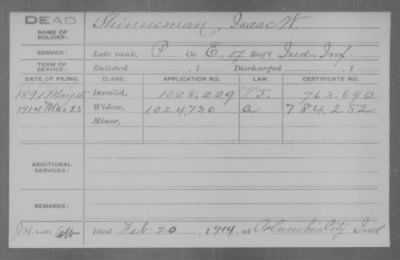 DEAD
NAME OF SOLDIER: Shinneman, Isaac W.
SERVICE: Late rank, P Co. E, 17 Reg't Ind. Inf.
TERM OF SERVICE: Enlisted , 1 Discharged , 1
DATE OF FILING. CLASS. APPLICATION NO. LAW. CERTIFICATE NO.
1891 May Invalid, 1028,229 J. 763,690
1914 Mar 25 Widow, 1024,730 a 784,252
Minor,
ADDITIONAL SERVICES:
REMARKS:
Died Feb 20 , 1914, at Columbia City Ind